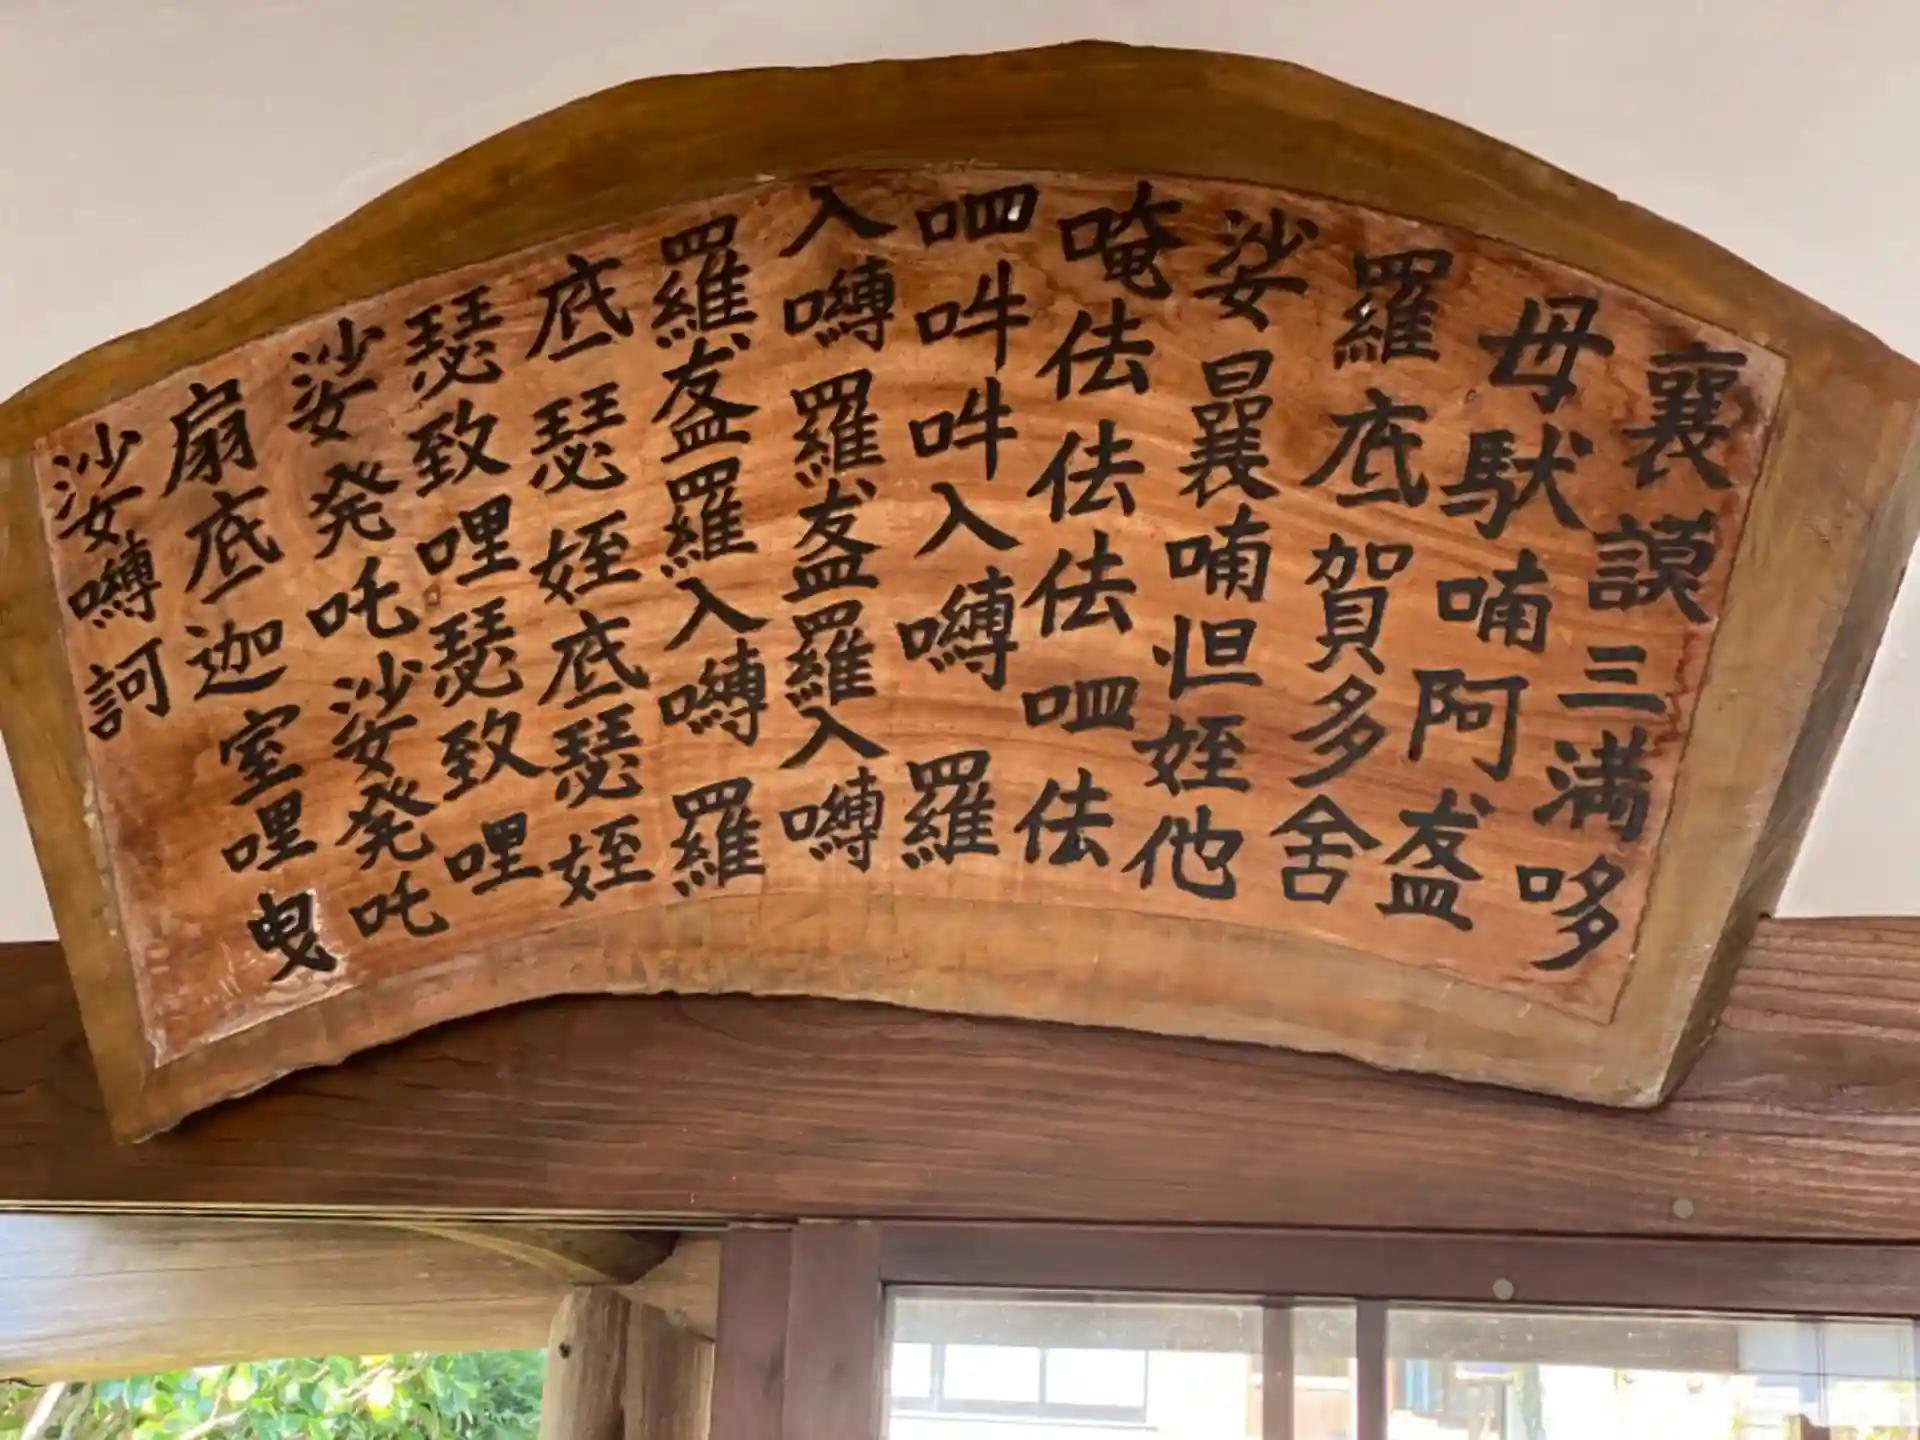 襄謨三満哆
母馱喃阿盋
羅底賀多舍
娑曩喃怛姪他
唵佉佉佉呬佉
呬吽吽入嚩羅
入嚩羅盋羅入嚩
羅盋羅入嚩羅
底瑟姪底瑟姪
瑟致哩瑟致哩
娑発吒娑発吒
扇底迦室哩曳
娑嚩訶